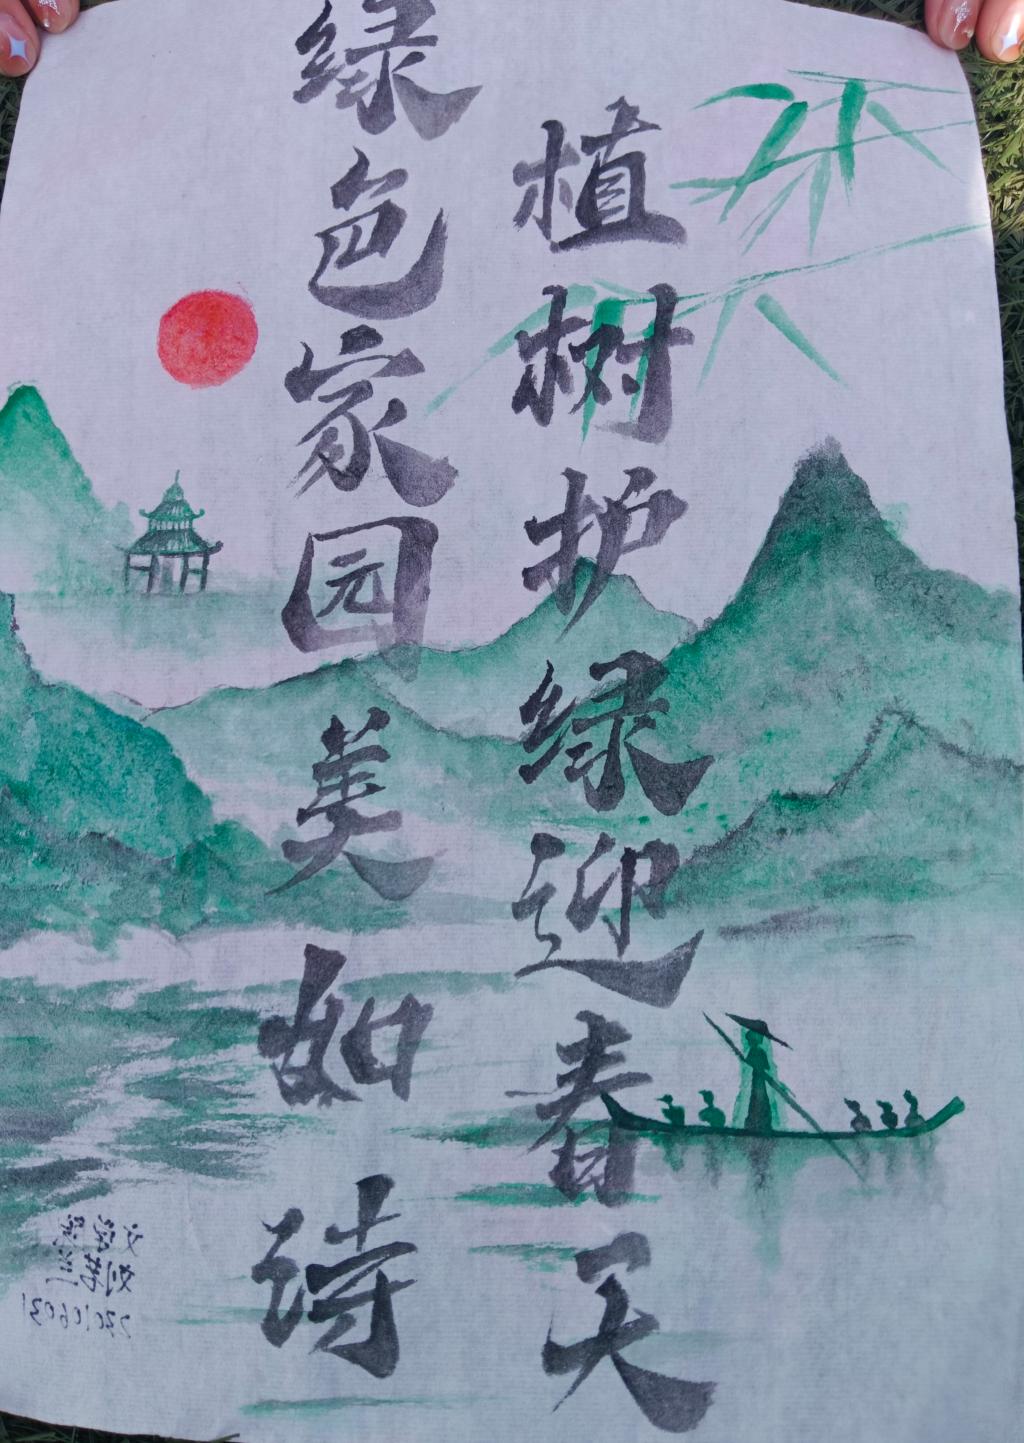 植树护绿迎春天
绿色家园美如诗
文学院
刘